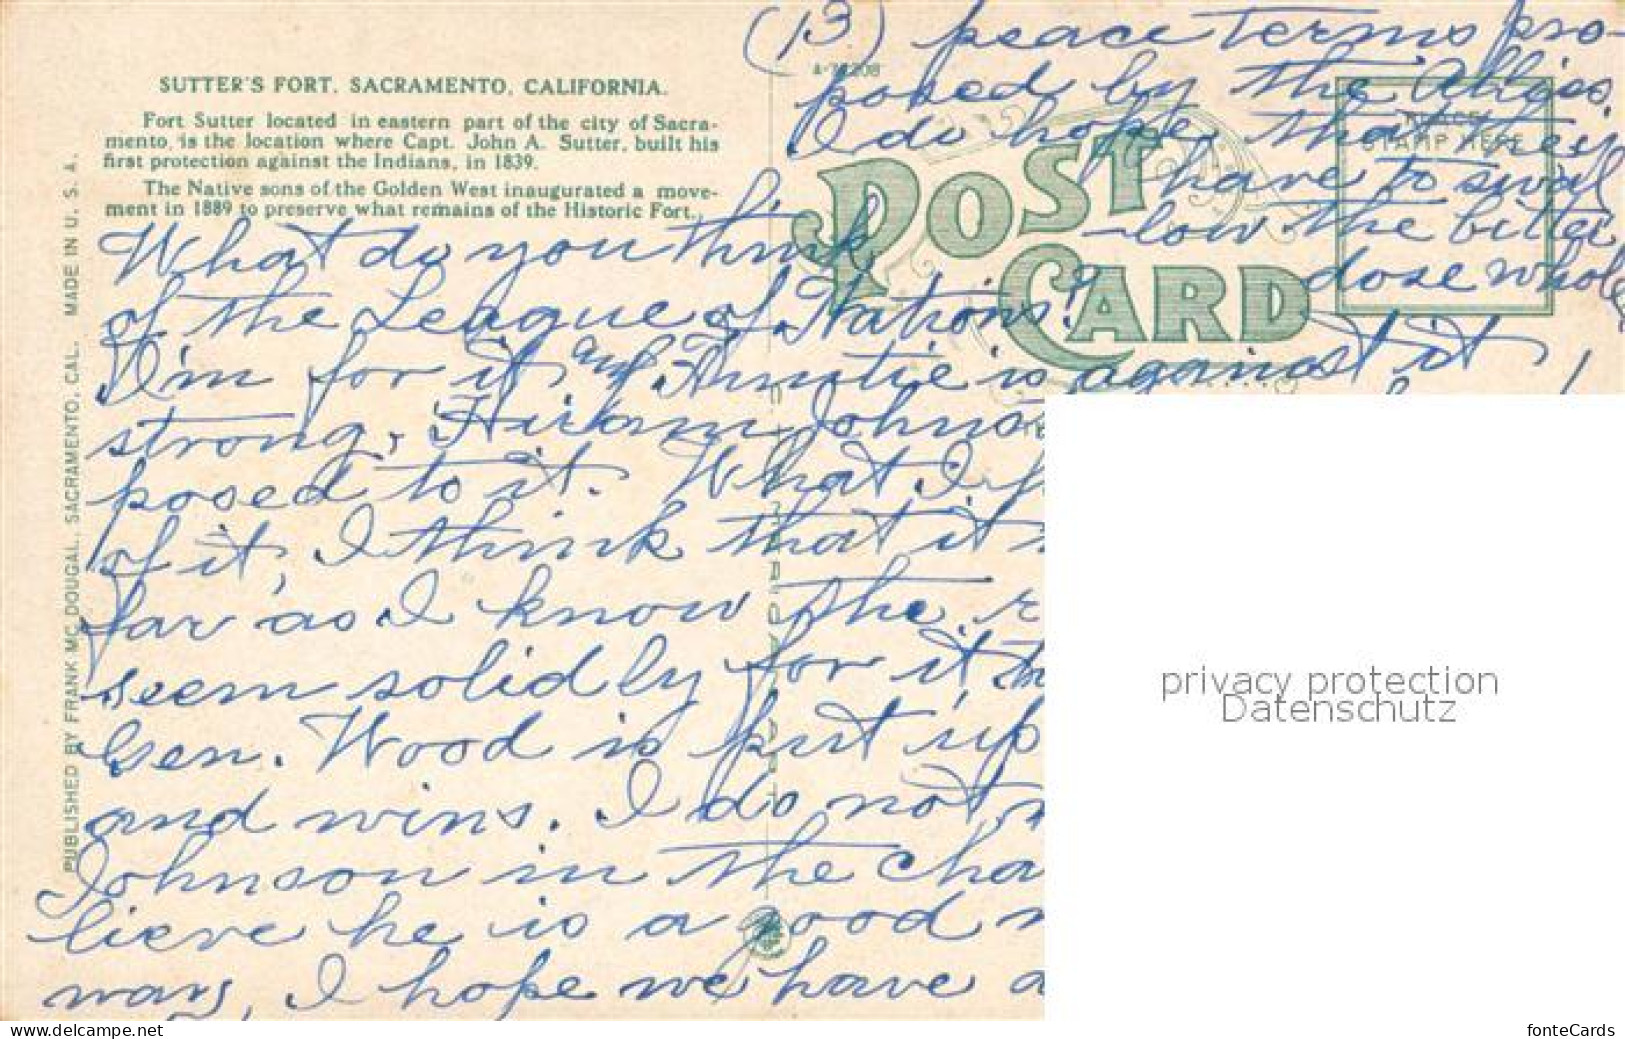 SUTTER'S FORT, SACRAMENTO, CALIFORNIA.
Fort Sutter located in eastern part of the city of Sacra-
mento, is the location where Capt. John A. Sutter, built his
first protection against the Indians, in 1839.
The Native sons of the Golden West inaugurated a move-
ment in 1889 to preserve what remains of the Historic Fort.
PUBLISHED BY FRANK MC DOUGAL, SACRAMENTO, CAL. MADE IN U. S. A.
POST
CARD
PLACE
STAMP HERE
(13) peace terms pro-
posed by the Allies.
I do hope that they
have to swal
-low the bitter
dose whole
What do you think
of the League of Nations?
I'm for it, and Auntie is against it
strong, Hiram Johns
posed to it. What I
of it, I think that it
far as I know the r
seem solidly for it, th
Gen. Wood is put up
and wins. I do not
Johnson in the cha
lieve he is a good
ways, I hope we have a
privacy protection
Datenschutz
www.delcampe.net
fonteCards